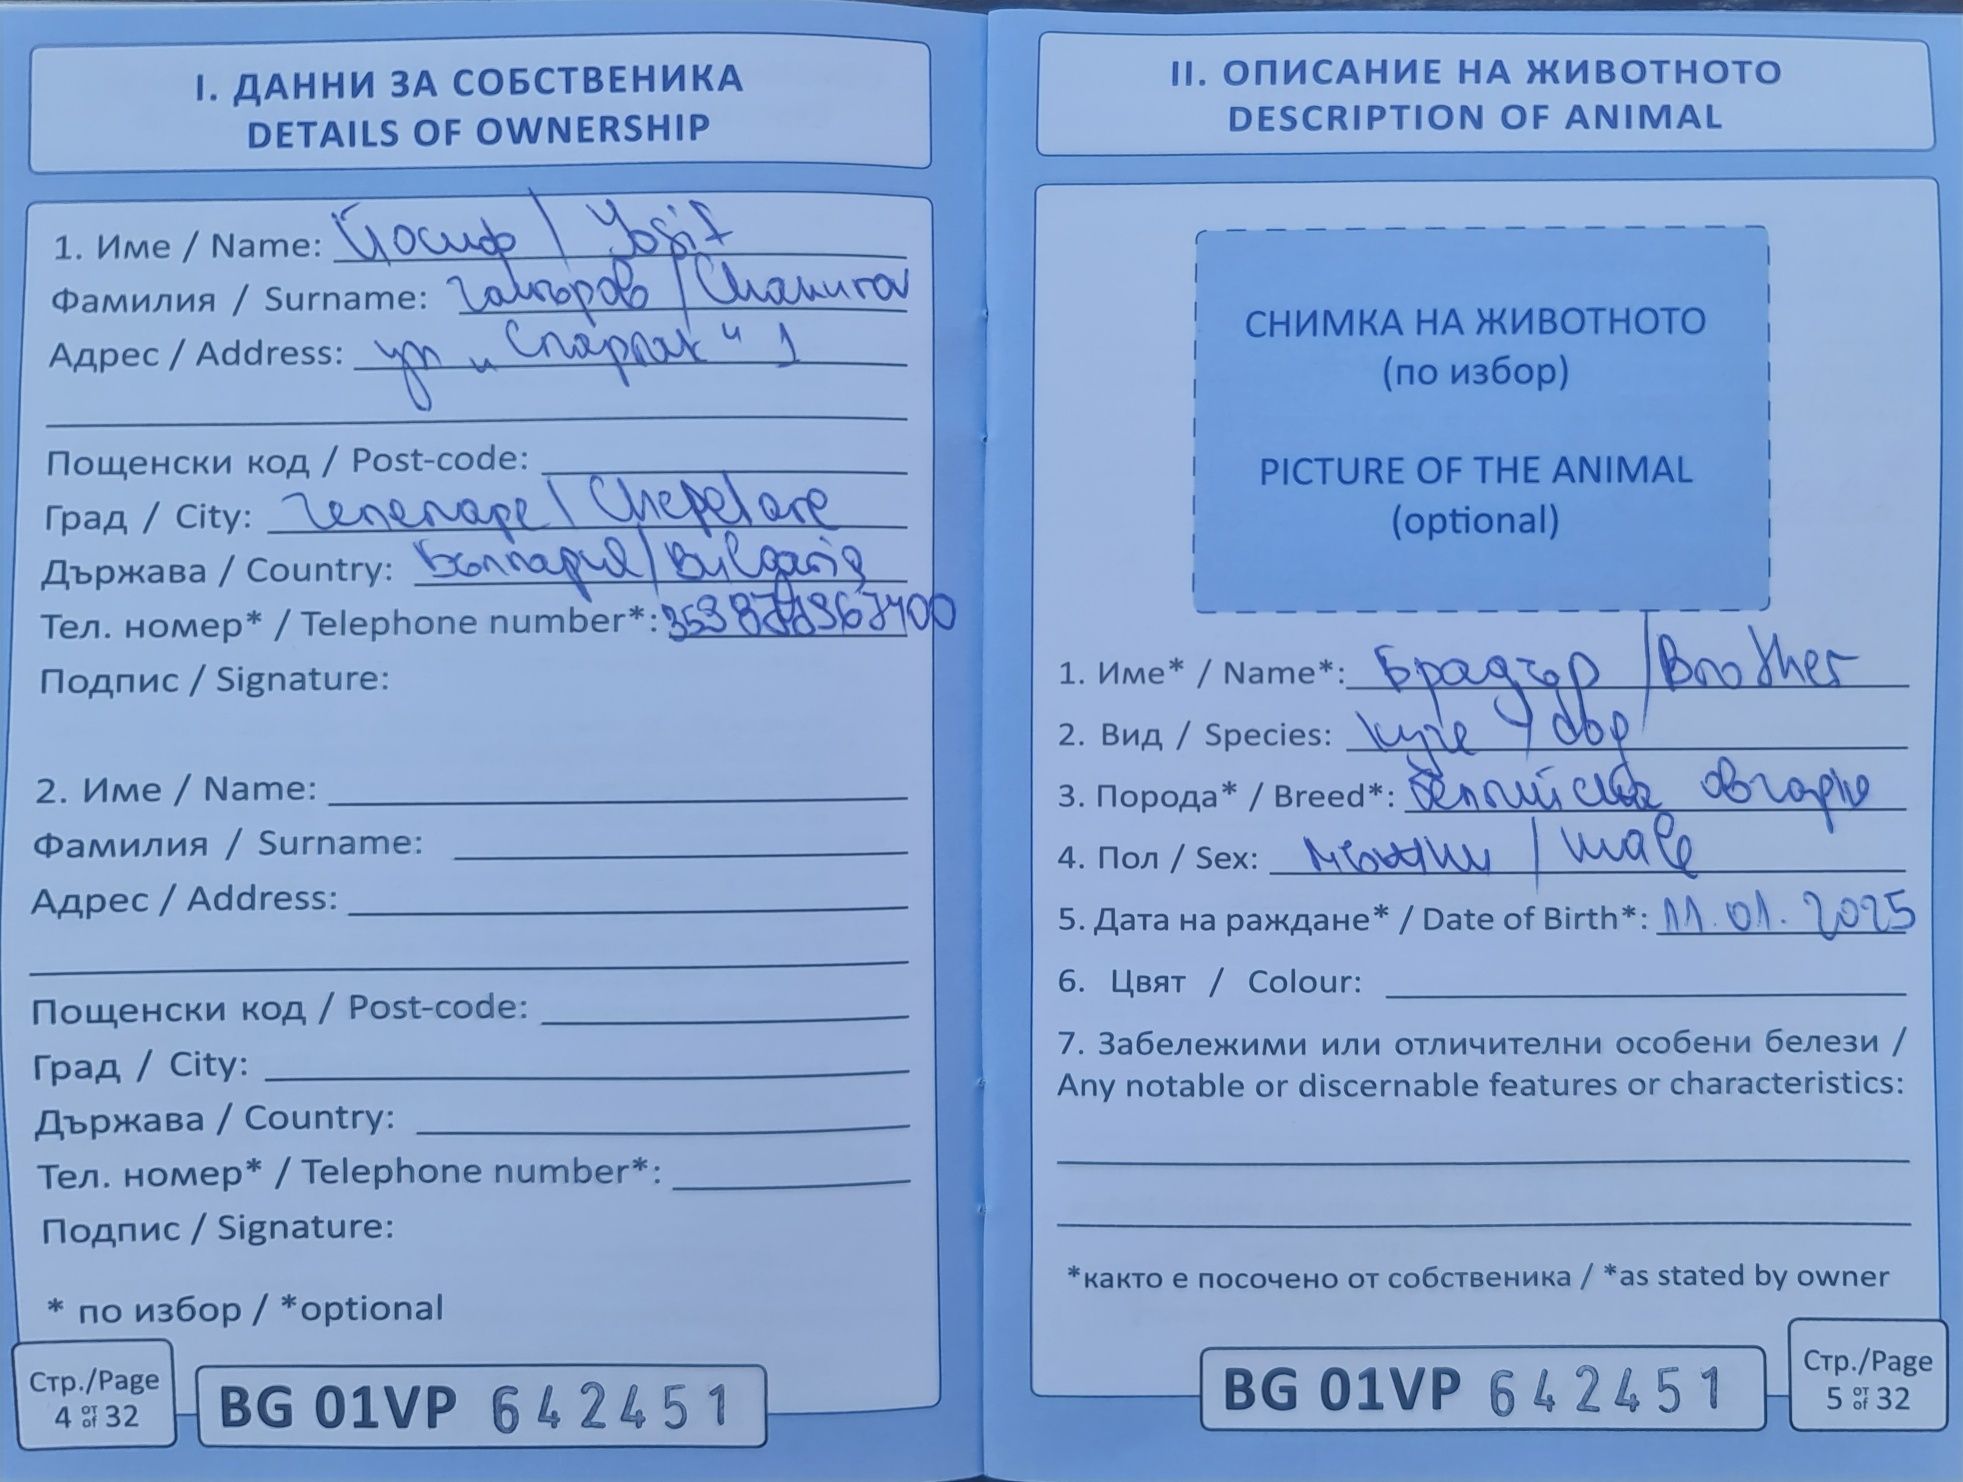 I. ДАННИ ЗА СОБСТВЕНИКА
DETAILS OF OWNERSHIP
1. Име / Name: Йосиф / Yosif
Фамилия / Surname:
Адрес / Address: ул „Спартак“ 1
Пощенски код / Post-code:
Град / City: Чепеларе / Chepelare
Държава / Country: България / Bulgaria
Тел. номер* / Telephone number*:
Подпис / Signature:
2. Име / Name:
Фамилия / Surname:
Адрес / Address:
Пощенски код / Post-code:
Град / City:
Държава / Country:
Тел. номер* / Telephone number*:
Подпис / Signature:
* по избор / *optional
Стр./Page
4 от/of 32
BG 01VP 642451
II. ОПИСАНИЕ НА ЖИВОТНОТО
DESCRIPTION OF ANIMAL
СНИМКА НА ЖИВОТНОТО
(по избор)
PICTURE OF THE ANIMAL
(optional)
1. Име* / Name*: Брадър / Brother
2. Вид / Species: куче / dog
3. Порода* / Breed*: белгийска овчарка
4. Пол / Sex: мъжки / male
5. Дата на раждане* / Date of Birth*: 11.01.2025
6. Цвят / Colour:
7. Забележими или отличителни особени белези /
Any notable or discernable features or characteristics:
*както е посочено от собственика / *as stated by owner
BG 01VP 642451
Стр./Page
5 от/of 32